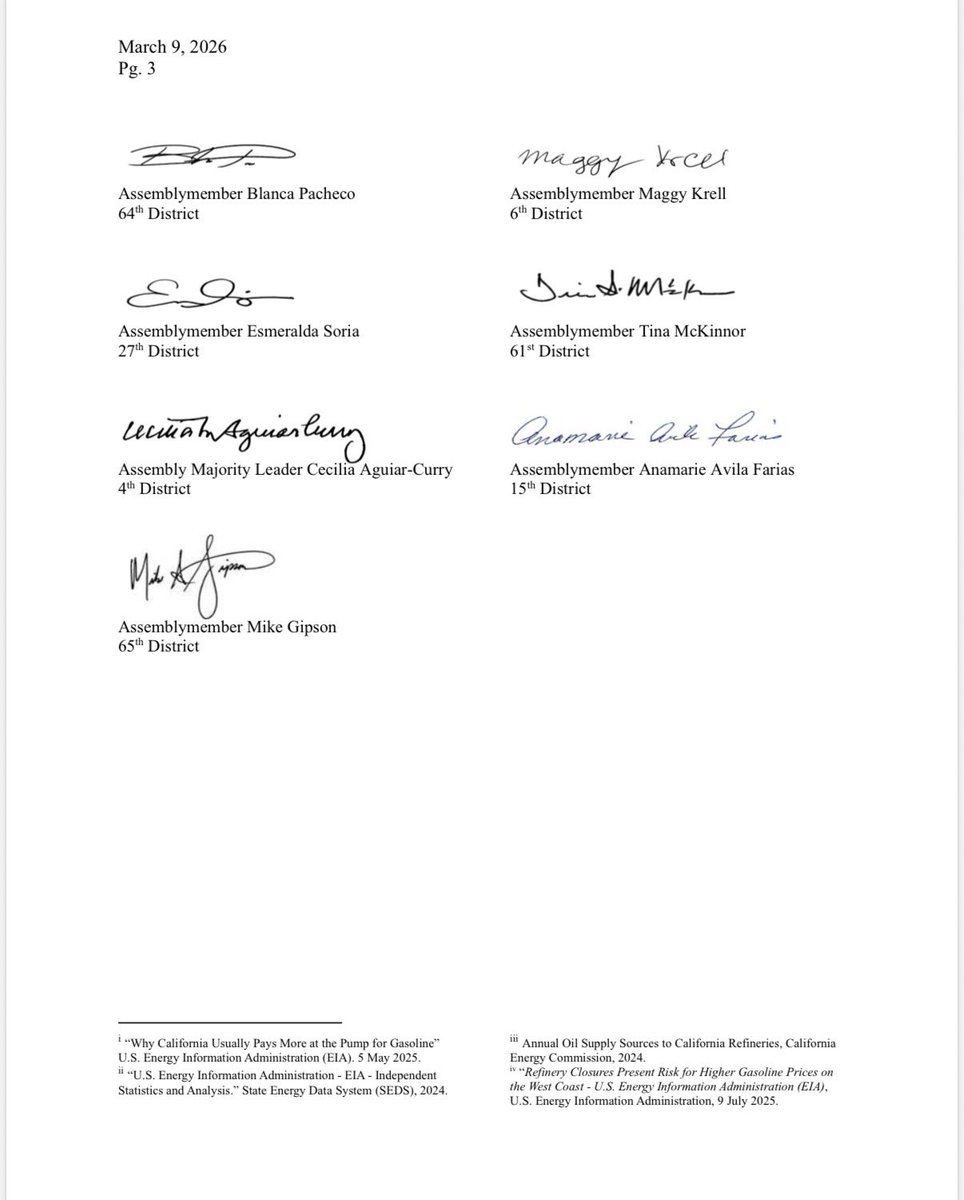 March 9, 2026
Pg. 3
Maggy Krell
Assemblymember Blanca Pacheco
64th District
Assemblymember Maggy Krell
6th District
Assemblymember Esmeralda Soria
27th District
Assemblymember Tina McKinnor
61st District
Cecilia M Aguiar-Curry
Anamarie Avila Farias
Assembly Majority Leader Cecilia Aguiar-Curry
4th District
Assemblymember Anamarie Avila Farias
15th District
Mike A Gipson
Assemblymember Mike Gipson
65th District
i “Why California Usually Pays More at the Pump for Gasoline”
U.S. Energy Information Administration (EIA). 5 May 2025.
ii “U.S. Energy Information Administration - EIA - Independent
Statistics and Analysis.” State Energy Data System (SEDS), 2024.
iii Annual Oil Supply Sources to California Refineries, California
Energy Commission, 2024.
iv “Refinery Closures Present Risk for Higher Gasoline Prices on
the West Coast - U.S. Energy Information Administration (EIA),
U.S. Energy Information Administration, 9 July 2025.